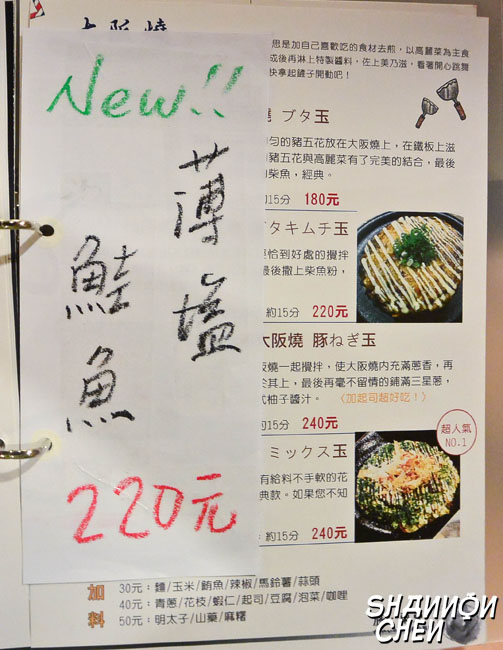 大阪燒
思是加自己喜歡吃的食材去煎，以高麗菜為主食
成後再淋上特製醬料，佐上美乃滋，看著開心跳舞
快拿起鏟子開動吧！
New!!
薄塩
鮭魚
220元
燒 ブタ玉
勻的豬五花放在大阪燒上，在鐵板上滋
豬五花與高麗菜有了完美的結合，最後
柴魚，經典。
約15分 180元
ブタキムチ玉
恰到好處的攪拌
最後撒上柴魚粉，
約15分 220元
大阪燒 豚ねぎ玉
燒一起攪拌，使大阪燒內充滿蔥香，再
於其上，最後再毫不留情的鋪滿三星蔥，
式柚子醬汁。 （加起司超好吃！）
約15分 240元
超人氣
NO.1
ミックス玉
有給料不手軟的花
典款。如果您不知
：約15分 240元
加料
30元：麵/玉米/鮪魚/辣椒/馬鈴薯/蒜頭
40元：青蔥/花枝/蝦仁/起司/豆腐/泡菜/咖哩
50元：明太子/山藥/麻糬
SHANNON
CHEN